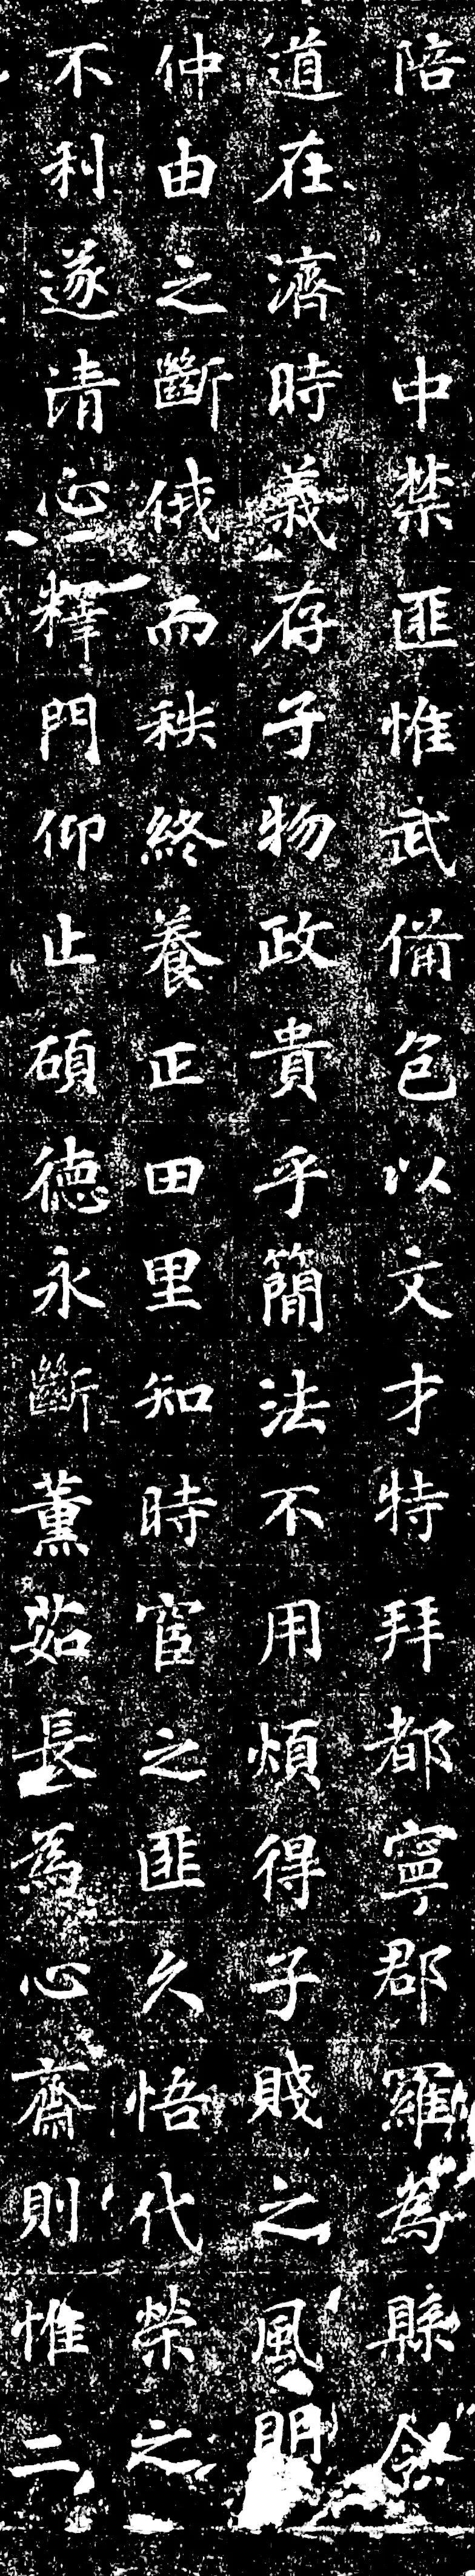 陪中禁匪惟武備包以文才特拜都寧郡羅為縣令
道在濟時義存子物政貴乎簡法不用煩得子賤之風明
仲由之斷俄而秩終養正田里知時宦之匪久悟代榮之
不利遂清心釋門仰止碩德永斷薰茹長為心齋則惟二